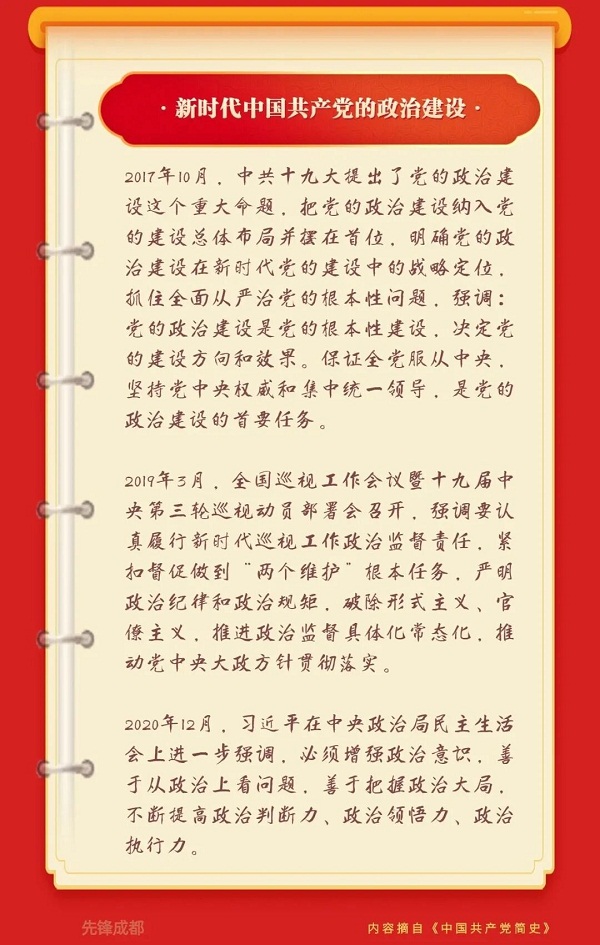 ·新时代中国共产党的政治建设·
2017年10月，中共十九大提出了党的政治建
设这个重大命题，把党的政治建设纳入党
的建设总体布局并摆在首位，明确党的政
治建设在新时代党的建设中的战略定位，
抓住全面从严治党的根本性问题，强调：
党的政治建设是党的根本性建设，决定党
的建设方向和效果。保证全党服从中央，
坚持党中央权威和集中统一领导，是党的
政治建设的首要任务。
2019年3月，全国巡视工作会议暨十九届中
央第三轮巡视动员部署会召开，强调要认
真履行新时代巡视工作政治监督责任，紧
扣督促做到“两个维护”根本任务，严明
政治纪律和政治规矩，破除形式主义、官
僚主义，推进政治监督具体化常态化，推
动党中央大政方针贯彻落实。
2020年12月，习近平在中央政治局民主生活
会上进一步强调，必须增强政治意识，善
于从政治上看问题，善于把握政治大局，
不断提高政治判断力、政治领悟力、政治
执行力。
先锋成都
内容摘自《中国共产党简史》